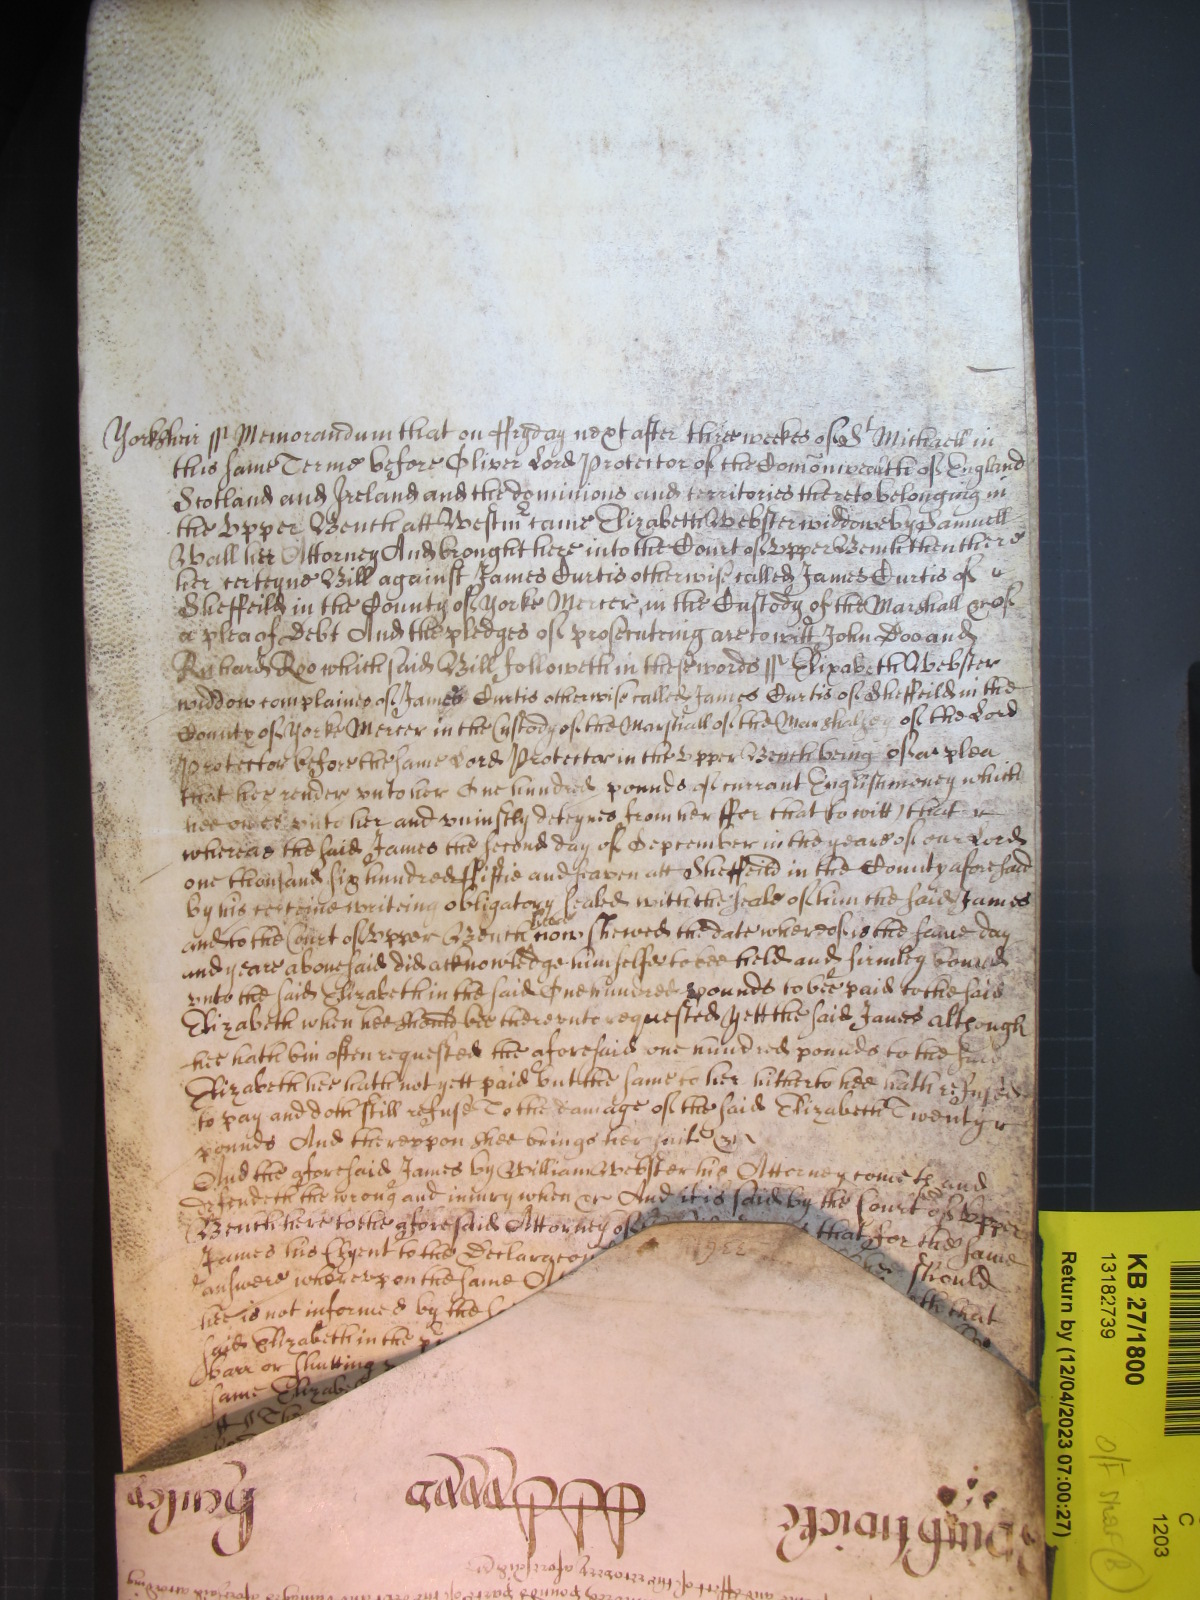 Yorkshir ss Memorandum that on ffryday next after three weekes of St Michaell in
this same Terme before Oliver Lord Protector of the Comonwealth of England
Scotland and Ireland and the dominions and territories thereto belonging in
the Upper Bench att Westmr came Elizabeth Webster widdowe by Samuell
Wall her Attorney And brought here into the Court of Upper Bench then there
her certeyne Bill against James Curtis otherwise called James Curtis of
Sheffeild in the County of Yorke Mercer in the Custody of the Marshall &c of
a plea of Debt And the pledges of prosecuteing are to witt John Doo and
Richard Roo which said Bill followeth in these words ss Elizabeth Webster
widdow complaines of James Curtis otherwise called James Curtis of Sheffeild in the
County of Yorke Mercer in the Custody of the Marshall of the Marshalsey of the Lord
Protector before the same Lord Protector in the Upper Bench being of a plea
that hee render unto her One hundred pounds of currant English money which
hee owes unto her and uniustly deteynes from her ffor that to witt that
whereas the said James the second day of September in the yeare of our Lord
one thousand six hundred ffiftie and seaven att Sheffeild in the County aforesaid
by his certeine writeing obligatory sealed with the seale of him the said James
and to the Court of Upper Bench here now shewed the date whereof is the same day
and yeare abovesaid did acknowledge himselfe to bee held and firmley bound
unto the said Elizabeth in the said One hundred pounds to bee paid to the said
Elizabeth when hee should bee thereunto requested Yett the said James although
hee hath bin often requested the aforesaid one hundred pounds to the said
Elizabeth hee hath not yett paid but the same to her hitherto hee hath refused
to pay and doth still refuse To the damage of the said Elizabeth Twenty
pounds And thereuppon shee brings her suite &c
And the aforesaid James by William Webster his Attorney cometh and
defendeth the wrong and iniury when &c And it is said by the Court of Upper
Bench here to the aforesaid Attorney of that for the same
James his Clyent to the Declaracon hee should
answere whereupon the same that
hee is not informed by the
said Elizabeth in the
barr or shutting
same Elizabeth
336
KB 27/1800
13182739
Return by (12/04/2023 07:00:27)
C
1203